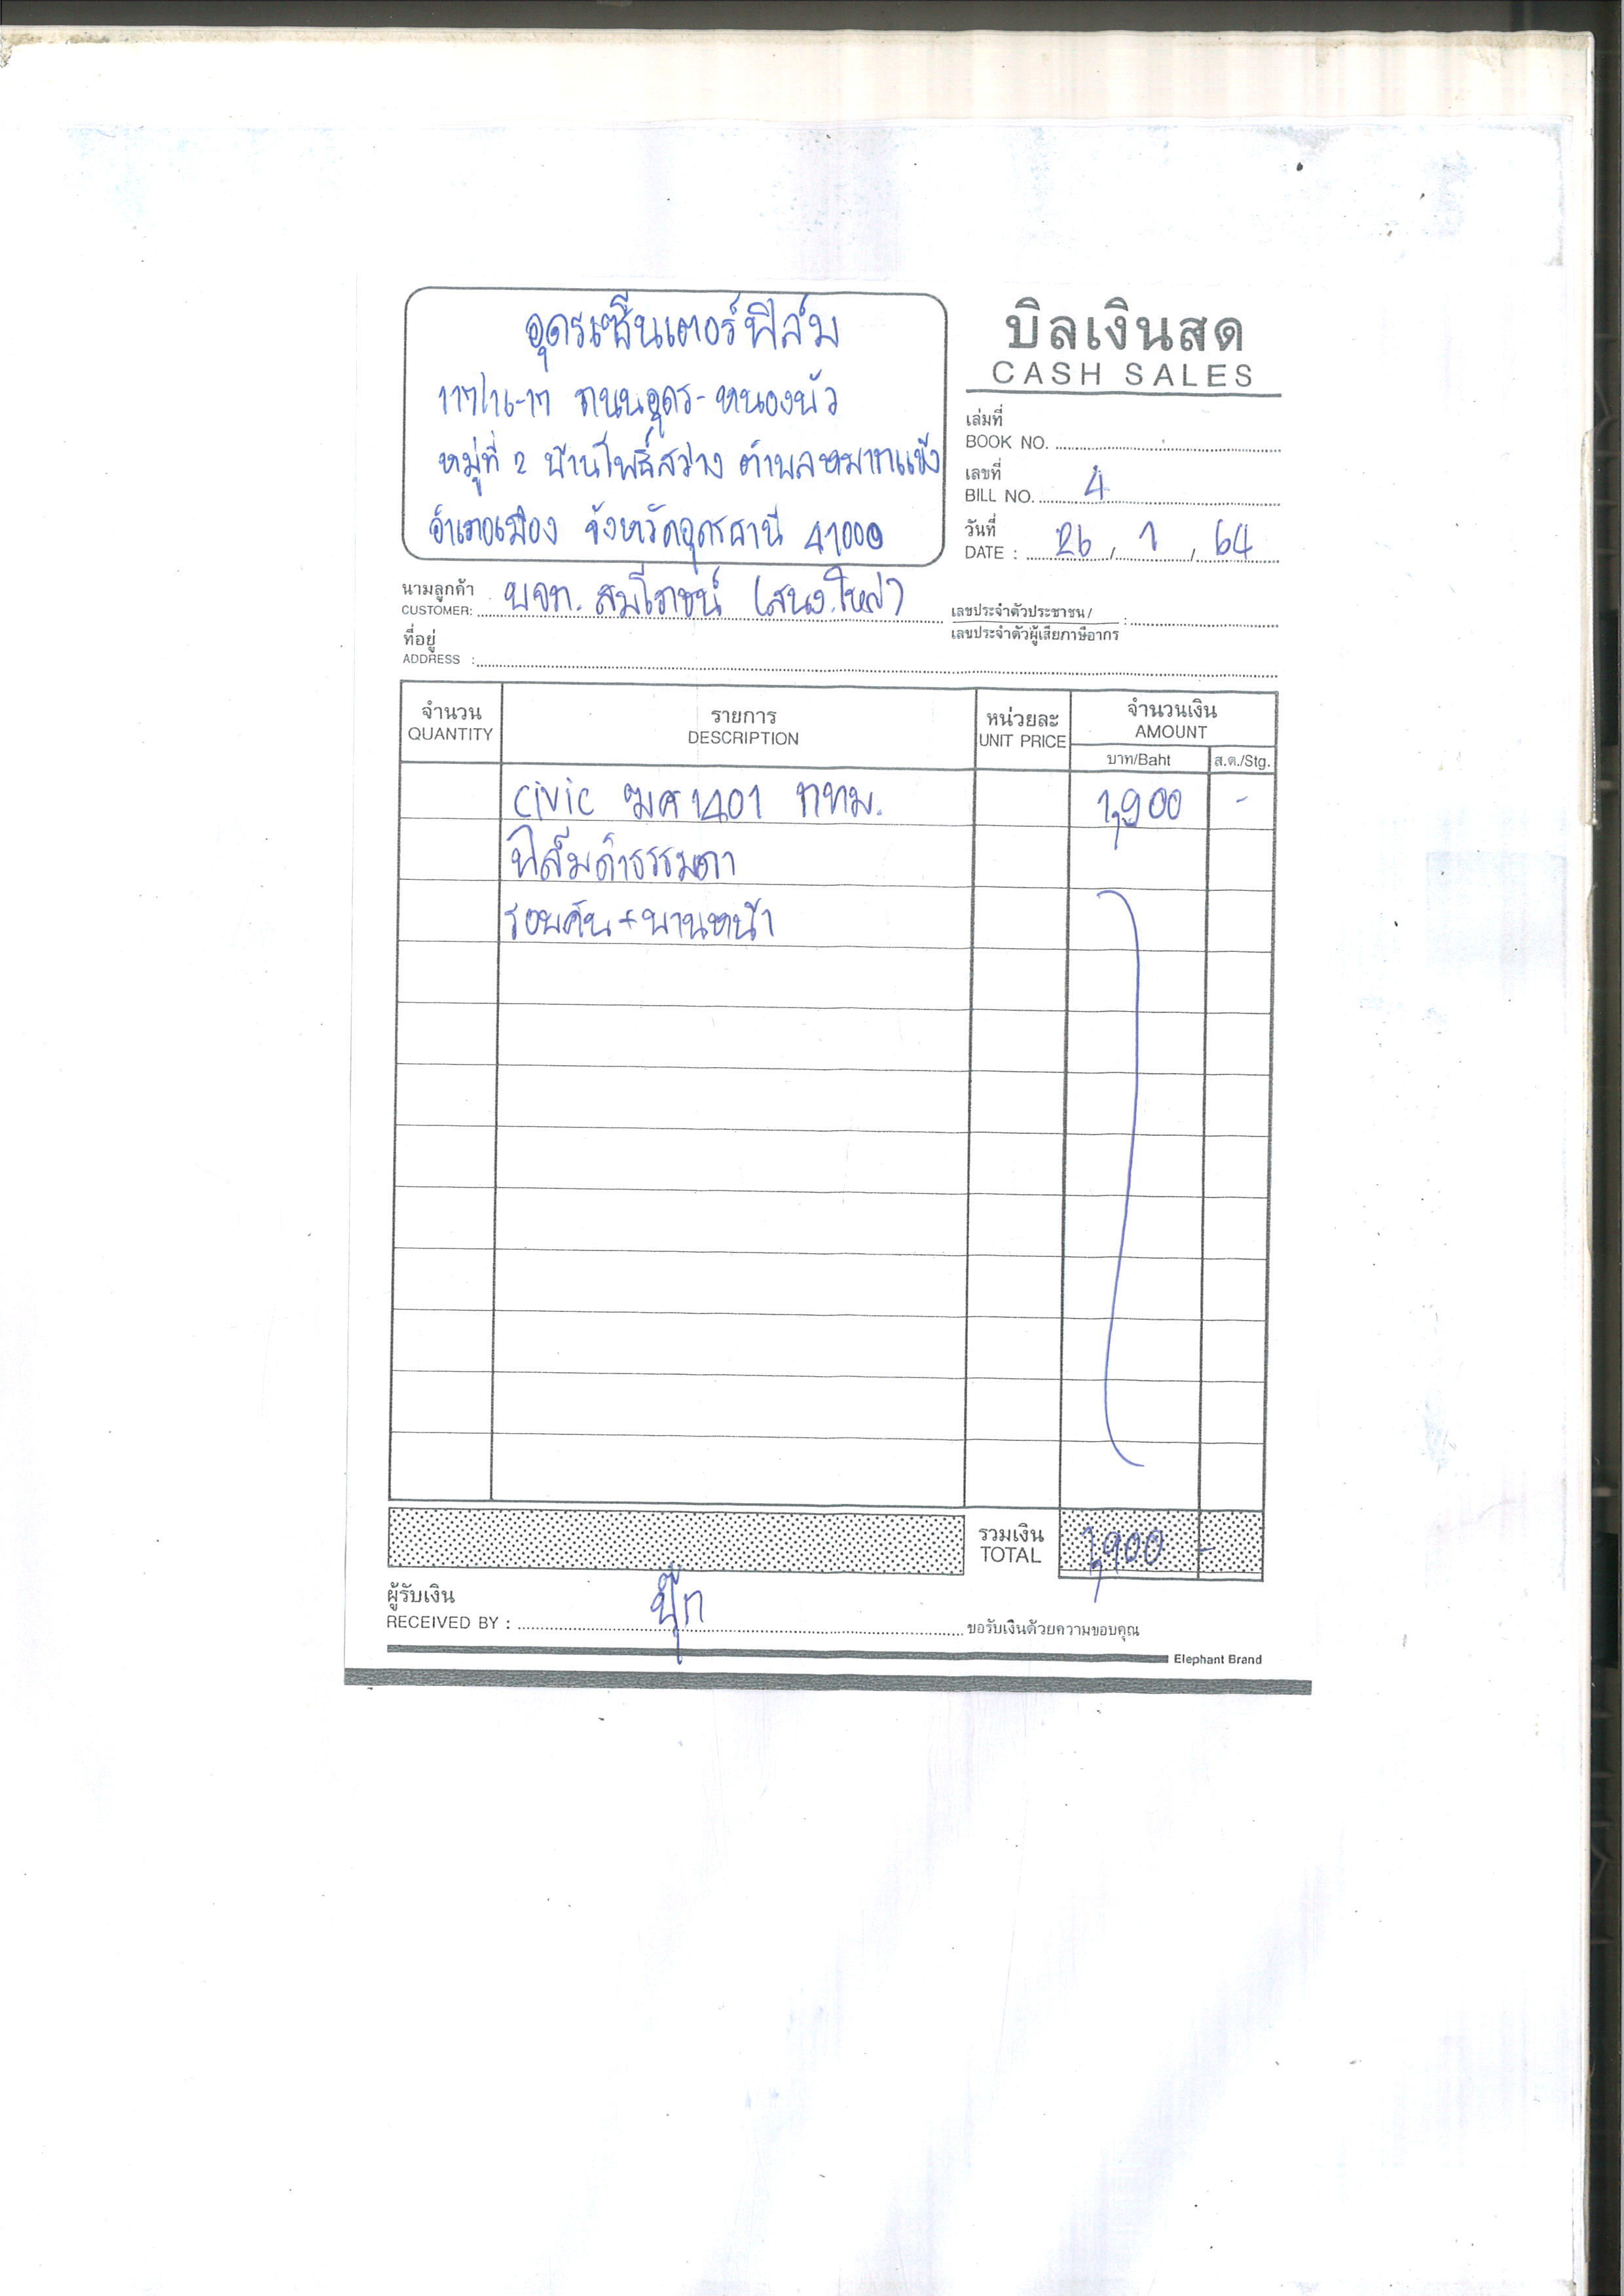 อุดรเซ็นเตอร์ฟิล์ม
117/16-17 ถนนอุดร-หนองบัว
หมู่ที่ 2 บ้านโพธิ์สว่าง ตำบลหมากแข้ง
อำเภอเมือง จังหวัดอุดรธานี 41000
บิลเงินสด
CASH SALES
เล่มที่
BOOK NO.
เลขที่
BILL NO. 4
วันที่
DATE : 26 / 1 / 64
นามลูกค้า
CUSTOMER: บจก. สมโภชน์ (สนง.ใหญ่)
เลขประจำตัวประชาชน/
เลขประจำตัวผู้เสียภาษีอากร :
ที่อยู่
ADDRESS :
จำนวน รายการ หน่วยละ จำนวนเงิน
QUANTITY DESCRIPTION UNIT PRICE AMOUNT
บาท/Baht ส.ต./Stg.
civic ฆศ 1401 กทม. 1,900 -
ฟิล์มดำธรรมดา
รอบคัน + บานหน้า
รวมเงิน
TOTAL 1,900 -
ผู้รับเงิน
RECEIVED BY : ปุ๊ก ขอรับเงินด้วยความขอบคุณ
Elephant Brand